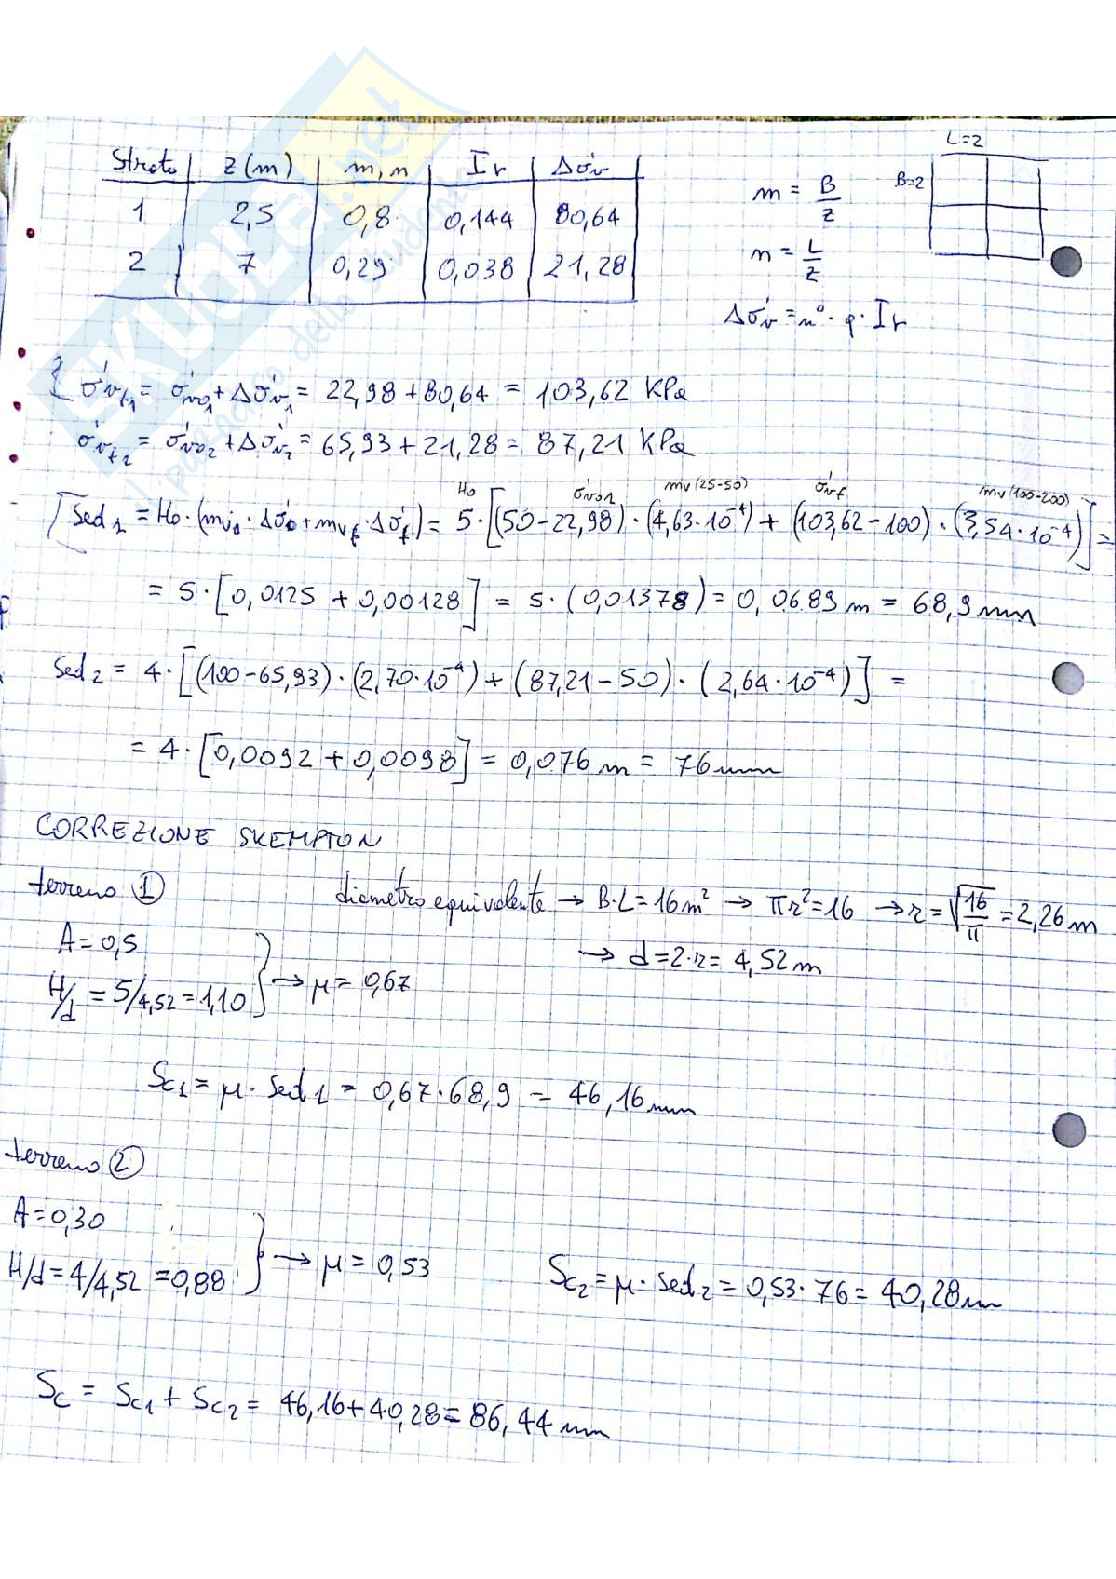 L=2
Strato | z (m) | m, n | Ir | Δσ'v
1 | 2,5 | 0,8 | 0,144 | 80,64
2 | 7 | 0,29 | 0,038 | 21,28
B=2
m = B/z
n = L/z
Δσ'v = n° · q · Ir
σ'vf1 = σ'v01 + Δσ'v1 = 22,98 + 80,64 = 103,62 KPa
σ'vf2 = σ'v02 + Δσ'v2 = 65,93 + 21,28 = 87,21 KPa
H0 mv(25-50) σ'vf mv(100-200)
Sed1 = H0 · (mv · Δσ'0 + mvf · Δσ'f) = 5 · [(50-22,98) · (4,63·10^-4) + (103,62-100) · (3,54·10^-4)] =
= 5 · [0,0125 + 0,00128] = 5 · (0,01378) = 0,0689 m = 68,9 mm
Sed2 = 4 · [(100-65,93) · (2,70·10^-4) + (87,21-50) · (2,64·10^-4)] =
= 4 · [0,0092 + 0,0098] = 0,076 m = 76 mm
CORREZIONE SKEMPTON
terreno ①
diametro equivalente → B·L = 16 m² → πr² = 16 → r = √(16/π) = 2,26 m
→ d = 2·r = 4,52 m
A = 0,5
H/d = 5/4,52 = 1,10 } → μ = 0,67
Sc1 = μ · Sed1 = 0,67 · 68,9 = 46,16 mm
terreno ②
A = 0,30
H/d = 4/4,52 = 0,88 } → μ = 0,53
Sc2 = μ · Sed2 = 0,53 · 76 = 40,28 m
Sc = Sc1 + Sc2 = 46,16 + 40,28 = 86,44 mm